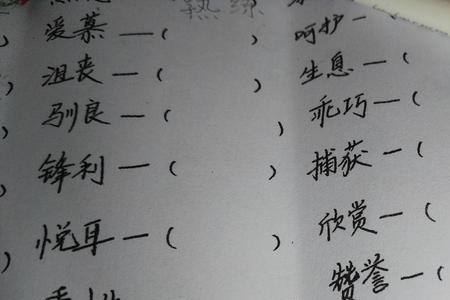 熟练
爱慕—(    )  呵护—
沮丧—(    )  生息—(
驯良—(    )  乖巧—(
锋利—(    )  捕获—(
悦耳—(    )  欣赏—(
赞誉—(